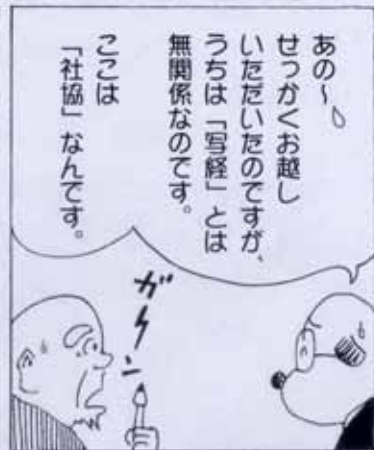 あの〜
せっかくお越し
いただいたのですが、
うちは「写経」とは
無関係なのです。
ここは
「社協」なんです。
ガーン